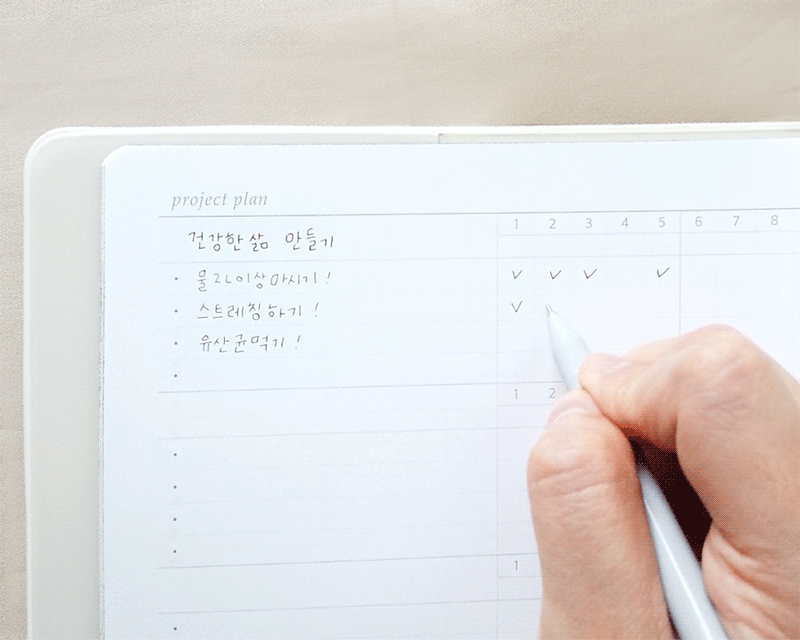 project plan
건강한 삶 만들기 1 2 3 4 5 6 7 8
· 물 2L 이상 마시기! ✓ ✓ ✓ ✓
· 스트레칭하기! ✓
· 유산균먹기!
·
1 2
·
·
·
·
1
·